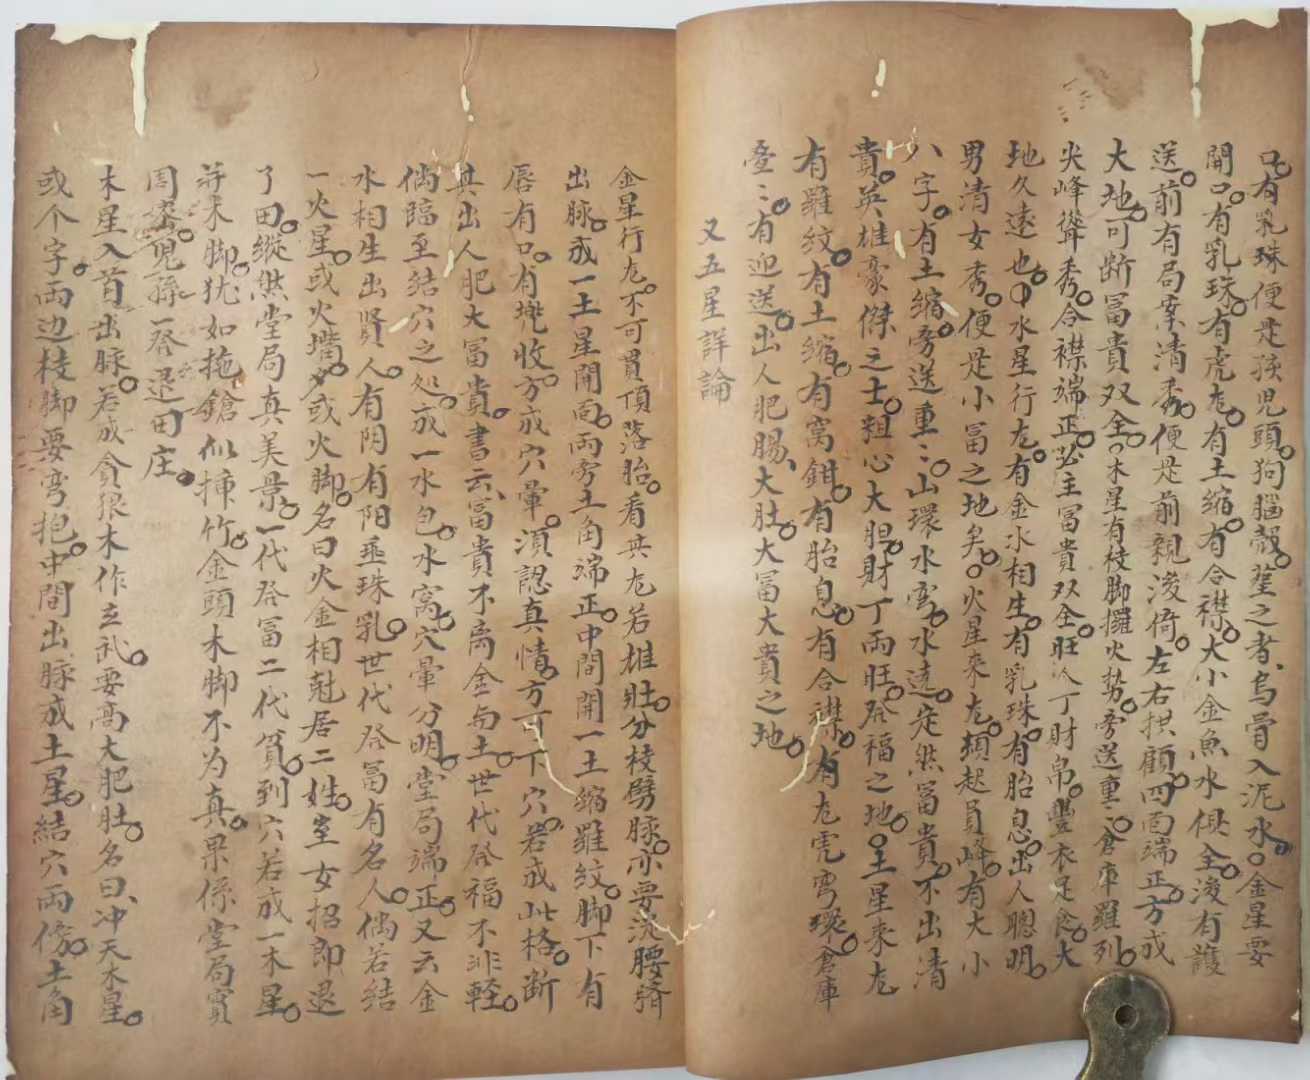 口。有乳珠便是孩兒頭。狗腦殼。葬之者、烏骨入泥水。○金星要
開口。有乳珠。有虎尨。有土縮。有合襟。大小金魚水俱全。後有護
送。前有局案清秀。便是前親後倚。左右拱顧。四面端正。方成
大地。可断冨貴双全。○木星有枝脚攞火势。旁送重〻。倉庫羅列。
尖峰聳秀。合襟端正。必主冨貴双全。旺人丁財帛。豐衣足食。大
地久遠也。○水星行尨。有金水相生。有乳珠。有胎息。出人聰明。
男清女秀。便是小冨之地矣。○火星來尨。頓起員峰。有大小
八字。有土縮。旁送重〻。山環水弯。水遶。定然冨貴。不出清
貴。英雄豪傑之士。粗心大胆。財丁両旺。發福之地。○土星来尨
有羅紋。有土縮。有窩鉗。有胎息。有合襟。有尨虎弯環。倉庫
疊〻。有迎送。出人肥腸、大肚。大冨大貴之地。
又五星詳論
金星行尨。不可貫頂落胎。看其尨若雄壯。分枝劈脉。亦要洩腰落
出脉。成一土星開面。両旁土角端正。中間開一土縮羅紋。脚下有
唇有口。有兠收。方成穴暈。須認真情。方可下穴。若成此格。断
其出人肥大冨貴。書云、冨貴不离金与土。世代發福不非輕。
倘臨至結穴之処。成一水包。水窩。穴暈分明。堂局端正。又云金
水相生出賢人。有阴有阳垂珠乳。世代發冨有名人。倘若結
一火星。或火墻。多或火脚。名曰火金相尅居二姓。室女招郎退
了田。縱然堂局真美景。一代發冨二代貧。到穴若成一木星。
並木脚。犹如拖鎗似揷竹。金頭木脚不为真。果係堂局實
周密。児孫一發退田庄。
木星入首出脉。若成貪狼木作玄武。要高大肥肚。名曰、冲天木星。
或个字。両边枝脚要弯抱。中間出脉成土星。結穴両傍。土角